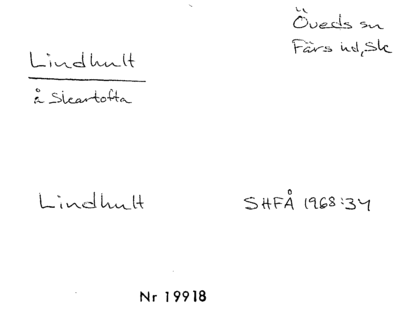 Öveds sn
Färs hd, Sk
Lindhult
å Skartofta
Lindhult
SHFÅ 1968:34
Nr 19918